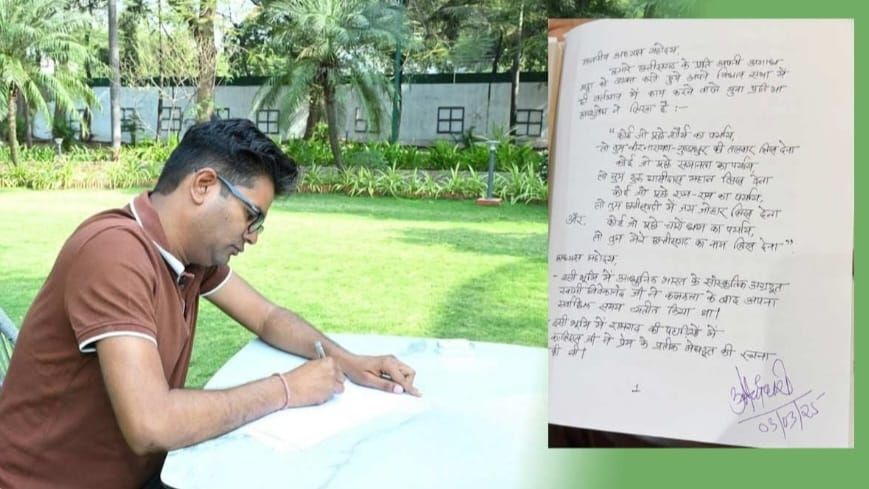 माननीय अध्यक्ष महोदय,
हमारे छत्तीसगढ़ के प्रति अपनी अगाध
श्रद्धा को व्यक्त करते हुये अपने विधान सभा में
ही वर्तमान में काम करने वाले युवा प्रतिभा
ने लिखा है :-
"कोई जो पूछे शौर्य का पर्याय,
तो तुम वीरनारायण-गुण्डाधुर की तलवार लिख देना
कोई जो पूछे समानता का पर्याय,
तो तुम गुरु घासीदास महान लिख देना
कोई जो पूछे राम-राम का पर्याय,
तो तुम छत्तीसगढ़ी में जय जोहार लिख देना
और, कोई जो पूछे चारों धाम का पर्याय,
तो तुम मेरे छत्तीसगढ़ का नाम लिख देना"
अध्यक्ष महोदय,
- इसी भूमि में आधुनिक भारत के सांस्कृतिक अग्रदूत
स्वामी विवेकानंद जी ने कलकत्ता के बाद अपना
सर्वाधिक समय व्यतीत किया था।
इसी भूमि में रामगढ़ की पहाड़ियों में
कालिदास जी ने प्रेम के प्रतीक मेघदूत की रचना
की थी।
1
03/03/25